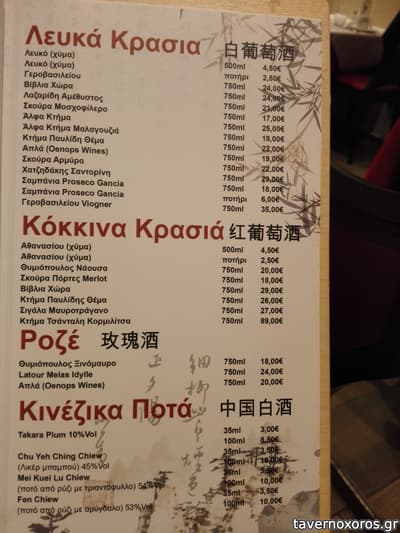 Λευκά Κρασια 白葡萄酒
Λευκό (χύμα) 500ml 4,50€
Λευκό (χύμα) ποτήρι 2,50€
Γεροβασιλείου 750ml 24,00€
Βίβλια Χώρα 750ml 24,00€
Λαζαρίδη Αμέθυστος 750ml 24,00€
Σκούρα Μοσχοφίλερο 750ml 21,00€
Άλφα Κτήμα 750ml 17,00€
Άλφα Κτήμα Μαλαγουζιά 750ml 25,00€
Κτήμα Παυλίδη Θέμα 750ml 18,00€
Απλά (Oenops Wines) 750ml 22,00€
Σκούρα Αρμύρα 750ml 19,00€
Χατζηδάκης Σαντορίνη 750ml 22,00€
Σαμπάνια Proseco Gancia 750ml 29,00€
Σαμπάνια Proseco Gancia 750ml 18,00€
Γεροβασιλείου Viogner ποτήρι 6,00€
750ml 35,00€
Κόκκινα Κρασιά 红葡萄酒
Αθανασίου (χύμα) 500ml 4,50€
Αθανασίου (χύμα) ποτήρι 2,50€
Θυμιόπουλος Νάουσα 750ml 20,00€
Σκούρα Πόρτες Merlot 750ml 18,00€
Βίβλια Χώρα 750ml 29,00€
Κτήμα Παυλίδης Θέμα 750ml 26,00€
Σιγάλα Μαυροτράγανο 750ml 27,00€
Κτήμα Τσάνταλη Κορμιλίτσα 750ml 89,00€
Ροζέ 玫瑰酒
Θυμιόπουλος Ξινόμαυρο 750ml 18,00€
Latour Melas Idylle 750ml 24,00€
Απλά (Oenops Wines) 750ml 20,00€
Κινέζικα Ποτά 中国白酒
Takara Plum 10%Vol 35ml 3,00€
100ml 8,50€
Chu Yeh Ching Chiew 35ml 3,50€
(Λικέρ μπαμπού) 45%Vol 100ml 10,00€
Mei Kuei Lu Chiew 35ml 3,50€
(ποτό από ρύζι με τριαντάφυλλο) 54%Vol 100ml 10,00€
Fen Chiew 35ml 3,50€
(ποτό από ρύζι με αμύγδαλο) 53%Vol 100ml 10,00€
tavernoxoros.gr